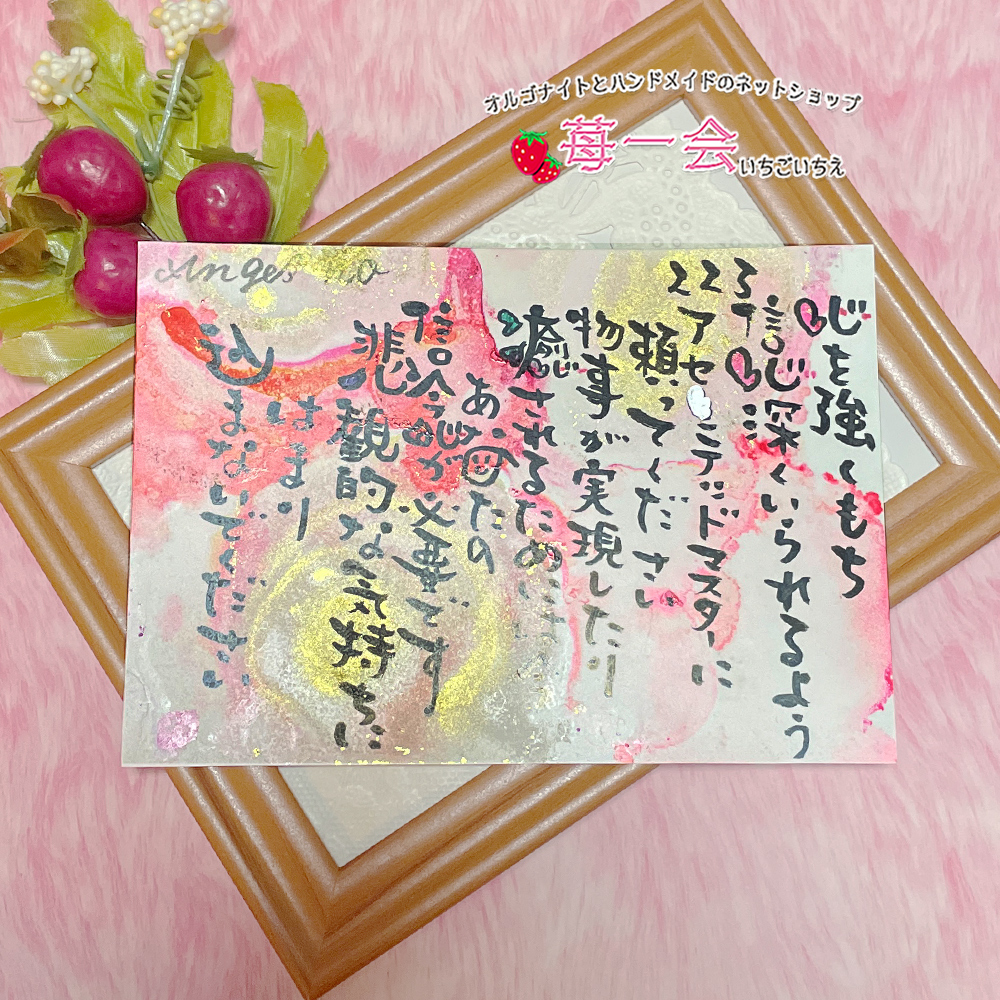 オルゴナイトとハンドメイドのネットショップ
苺一会
いちごいちえ
223
心を強くもち
信じ深くいられるよう
アセンデッドマスターに
頼ってください
物事が実現したり
癒されるためには
あなたの
信念が必要です
悲観的な気持ちに
はまり
込まないでください